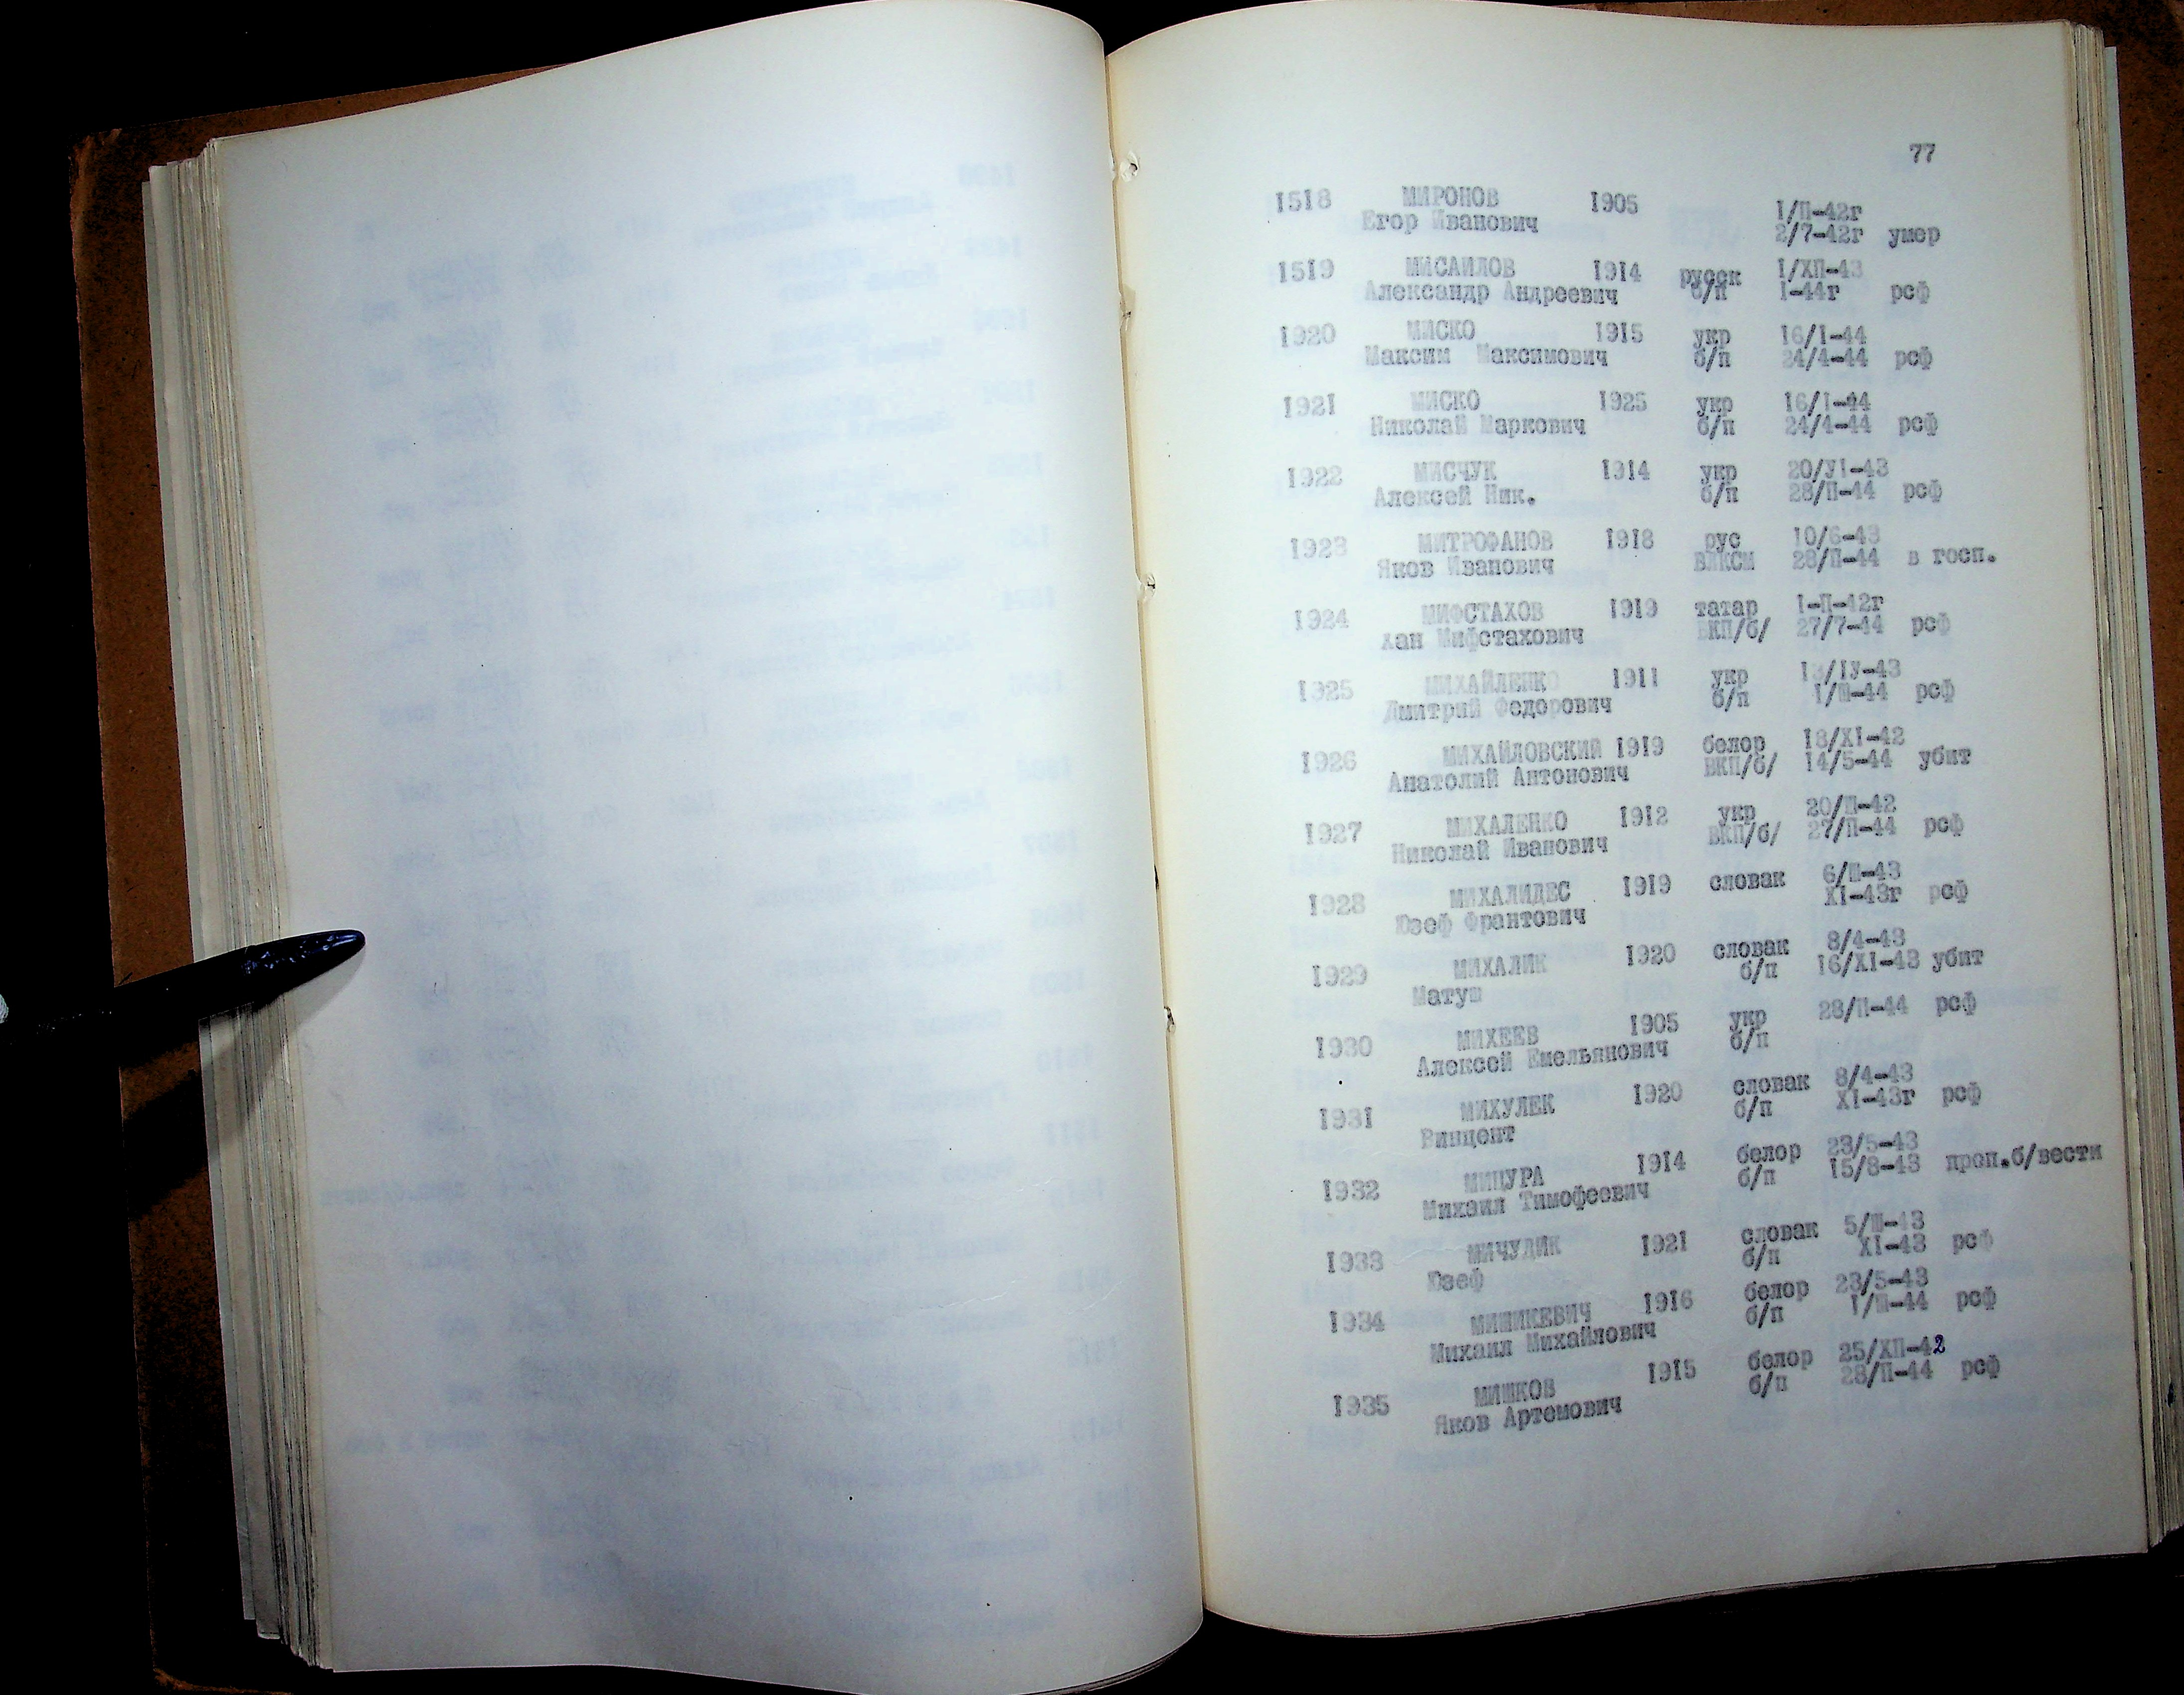 77
1518 МИРОНОВ 1905 1/П-42г
Егор Иванович 2/7-42г умер
1519 МИСАИЛОВ 1914 русск 1/ХП-43
Александр Андреевич б/п 1-44г рсф
1920 МИСКО 1915 укр 16/1-44
Максим Максимович б/п 24/4-44 рсф
1921 МИСКО 1925 укр 16/1-44
Николай Маркович б/п 24/4-44 рсф
1922 МИСЧУК 1914 укр 20/У1-43
Алексей Ник. б/п 28/П-44 рсф
1923 МИТРОФАНОВ 1918 рус 10/6-43
Яков Иванович ВЛКСМ 28/П-44 в госп.
1924 МИФСТАХОВ 1919 татар 1-П-42г
Хан Мифстахович ВКП/б/ 27/7-44 рсф
1925 МИХАЙЛЕНКО 1911 укр 13/1У-43
Дмитрий Федорович б/п 1/Ш-44 рсф
1926 МИХАЙЛОВСКИЙ 1919 белор 18/Х1-42
Анатолий Антонович ВКП/б/ 14/5-44 убит
1927 МИХАЛЕНКО 1912 укр 20/Ш-42
Николай Иванович ВКП/б/ 27/П-44 рсф
1928 МИХАЛИДЕС 1919 словак 6/Ш-43
Юзеф Франтович Х1-43г рсф
1929 МИХАЛИК 1920 словак 8/4-43
Матуш б/п 16/Х1-43 убит
1930 МИХЕЕВ 1905 укр 28/П-44 рсф
Алексей Емельянович б/п
1931 МИХУЛЕК 1920 словак 8/4-43
Винцент б/п Х1-43г рсф
1932 МИЦУРА 1914 белор 23/5-43
Михаил Тимофеевич б/п 15/8-43 проп.б/вести
1933 МИЧУДИК 1921 словак 5/Ш-43
Юзеф б/п Х1-43 рсф
1934 МИШКЕВИЧ 1916 белор 23/5-43
Михаил Михайлович б/п 1/Ш-44 рсф
1935 МИШКОВ 1915 белор 25/ХП-42
Яков Артемович б/п 28/П-44 рсф